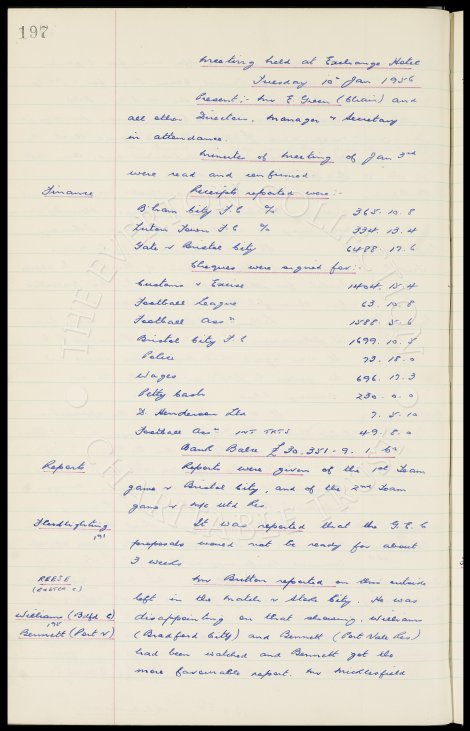 197
Meeting held at Exchange Hotel
Tuesday 10th Jan 1956
Present:- Mr E Green (Chair) and
all other Directors, Manager & Secretary
in attendance.
Minutes of Meeting of Jan 3rd
were read and confirmed
Finance Receipts reported were:-
B'ham City F C a/c 365. 10. 8
Luton Town F C a/c 334. 13. 4
Gate v Bristol City 6488. 17. 6
Cheques were signed for:-
Customs & Excise 1404. 15. 4
Football League 63. 10. 8
Football Assn 1588. 5. 6
Bristol City F C 1699. 10. 8
Police 73. 18. 0
Wages 696. 17. 3
Petty Cash 230. 0. 0
D. Henderson Ltd 7. 5. 10
Football Assn INT TKTS 49. 8. 0
Bank Balce £30,351. 9. 1.
Reports Reports were given of the 1st Team
game v Bristol City, and of the 2nd Team
game v M/c Utd Res.
Floodlighting It was reported that the G.E.C
proposals would not be ready for about
3 weeks
REESE Mr Britton reported on this outside
left in the match v Stoke City. He was
Williams (Bdfd C) disappointing on that showing. Williams
Bennett (Port V) (Bradford City) and Bennett (Port Vale Res.)
had been watched and Bennett got the
more favourable report. Mr Micklesfield
THE EVERTON COLLECTION
CHARITABLE TRUST